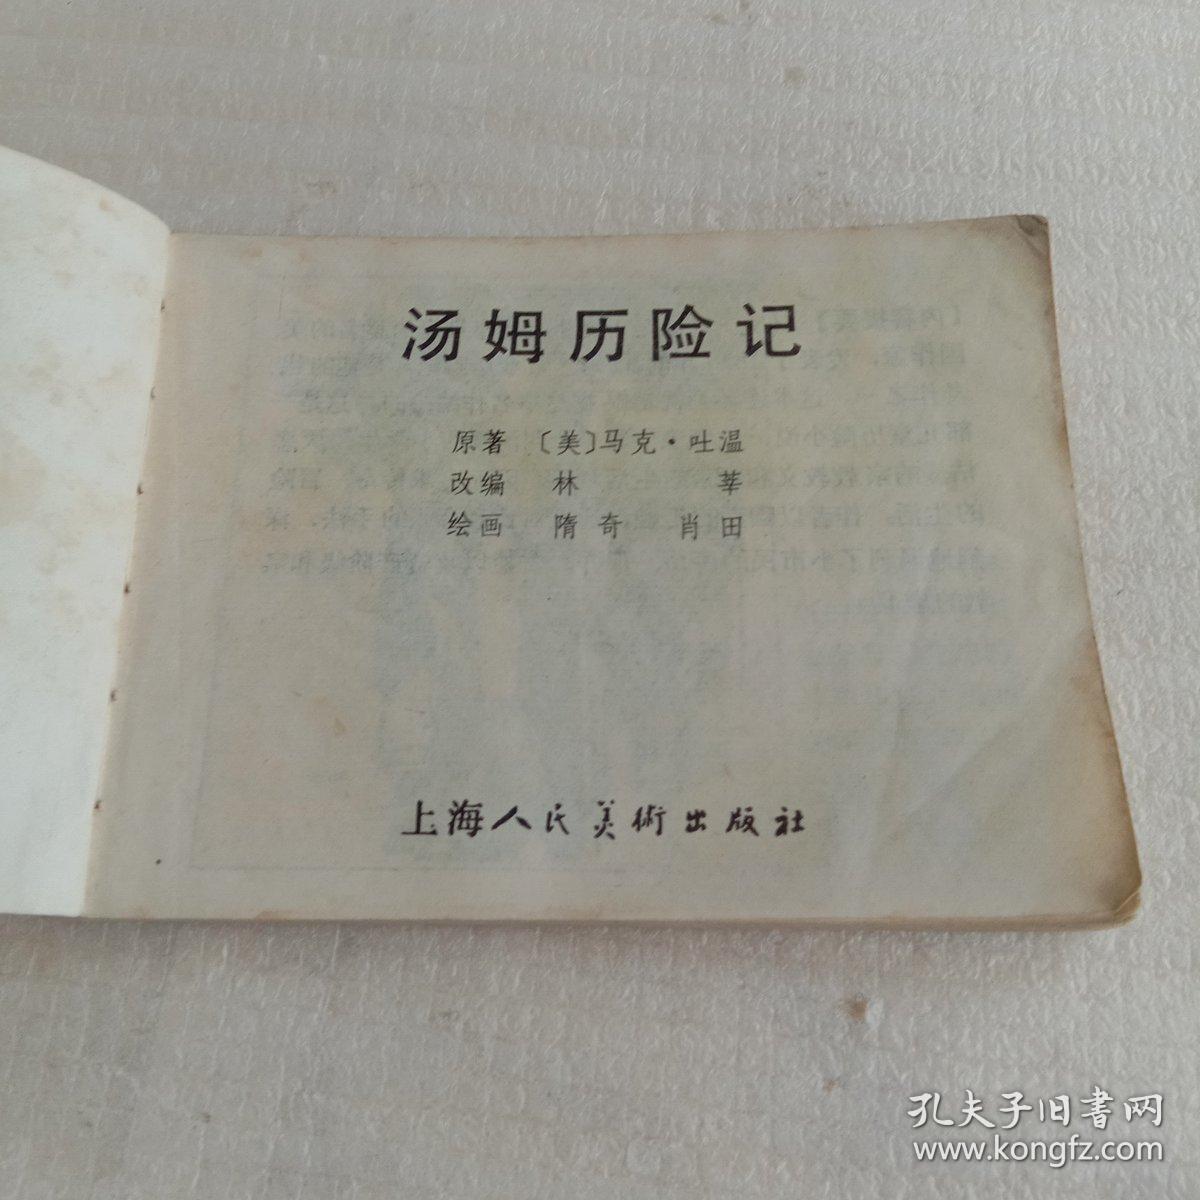 汤姆历险记
原著 〔美〕马克·吐温
改编 林 莘
绘画 隋奇 肖田
上海人民美術出版社
孔夫子旧書网
www.kongfz.com